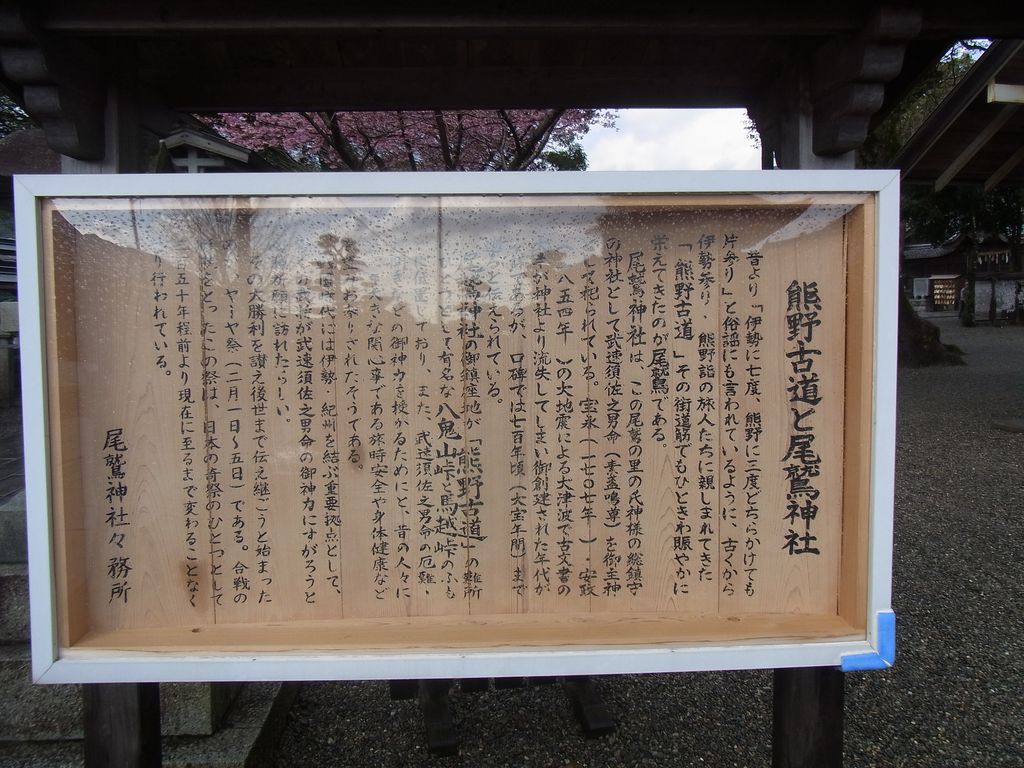 熊野古道と尾鷲神社
昔より「伊勢に七度、熊野に三度どちらかけても
片参り」と俗謡にも言われているように、古くから
伊勢参り・熊野詣の旅人たちに親しまれてきた
「熊野古道」その街道筋でもひときわ賑やかに
栄えてきたのが尾鷲である。
尾鷲神社は、この尾鷲の里の氏神様の総鎮守
の神社として武速須佐之男命（素盞鳴尊）を御主神
祀られている。宝永（一七〇七年）・安政
八五四年）の大地震による大津波で古文書の
が神社より流失してしまい御創建された年代が
あるが、口碑では七百年頃（大宝年間）まで
と伝えられている。
鷲神社の御鎮座地が「熊野古道」の難所
として有名な八鬼山峠と馬越峠のふも
に位置しており、また、武速須佐之男命の厄難、
どの御神力を授かるためにと、昔の人々に
大きな関心事である旅時安全や身体健康など
お参りされたそうである。
時代には伊勢・紀州を結ぶ重要拠点として、
が武速須佐之男命の御神力にすがろうと
祈願に訪れたらしい。
その大勝利を讃え後世まで伝え継ごうと始まった
ヤーヤ祭（二月一日～五日）である。合戦の
をとったこの祭は、日本の奇祭のひとつとして
百五十年程前より現在に至るまで変わることなく
り行われている。
尾鷲神社々務所